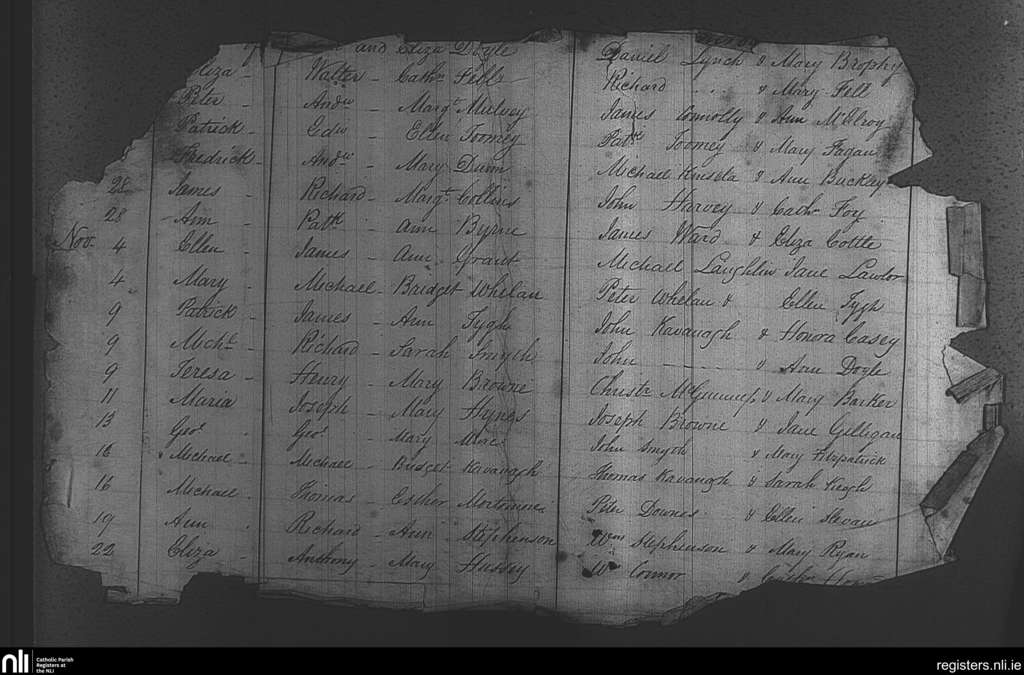 and Eliza Doyle Daniel Lynch & Mary Brophy
Eliza Walter - Cathn Fells Richard & Mary Fell
Peter Andw - Margt Mulvey James Connolly & Ann McElroy
Patrick - Edw Ellen Toomey Patk Toomey & Mary Fagan
Fredrick - Andw - Mary Dunn Michael Kinsela & Ann Buckley
28 James - Richard - Margt Collins John Harvey & Cathn Foy
28 Ann - Patk - Ann Byrne James Ward & Eliza Cottle
Nov. 4 Ellen - James - Ann Grant Michael Laughlin Jane Lawlor
4 Mary - Michael - Bridget Whelan Peter Whelan & Ellen Tygh
9 Patrick - James - Ann Tygh John Kavanagh & Honora Casey
9 Michl - Richard - Sarah Smyth John & Ann Doyle
9 Teresa - Henry - Mary Browne Christr & Mary Barker
11 Maria Joseph - Mary Hynes Joseph Browne & Jane Gilligan
13 Geor Geor - Mary John Smyth & Mary Fitzpatrick
16 Michael - Michael - Bridget Kavanagh Thomas Kavanagh & Sarah Keogh
16 Michael Thomas - Esther Peter Downes & Ellen
19 Ann Richard - Ann - Stephenson Wm Stephenson & Mary Ryan
22 Eliza - Anthony - Mary Hussey Wm Connor &
nli
Catholic Parish
Registers at
the NLI
registers.nli.ie